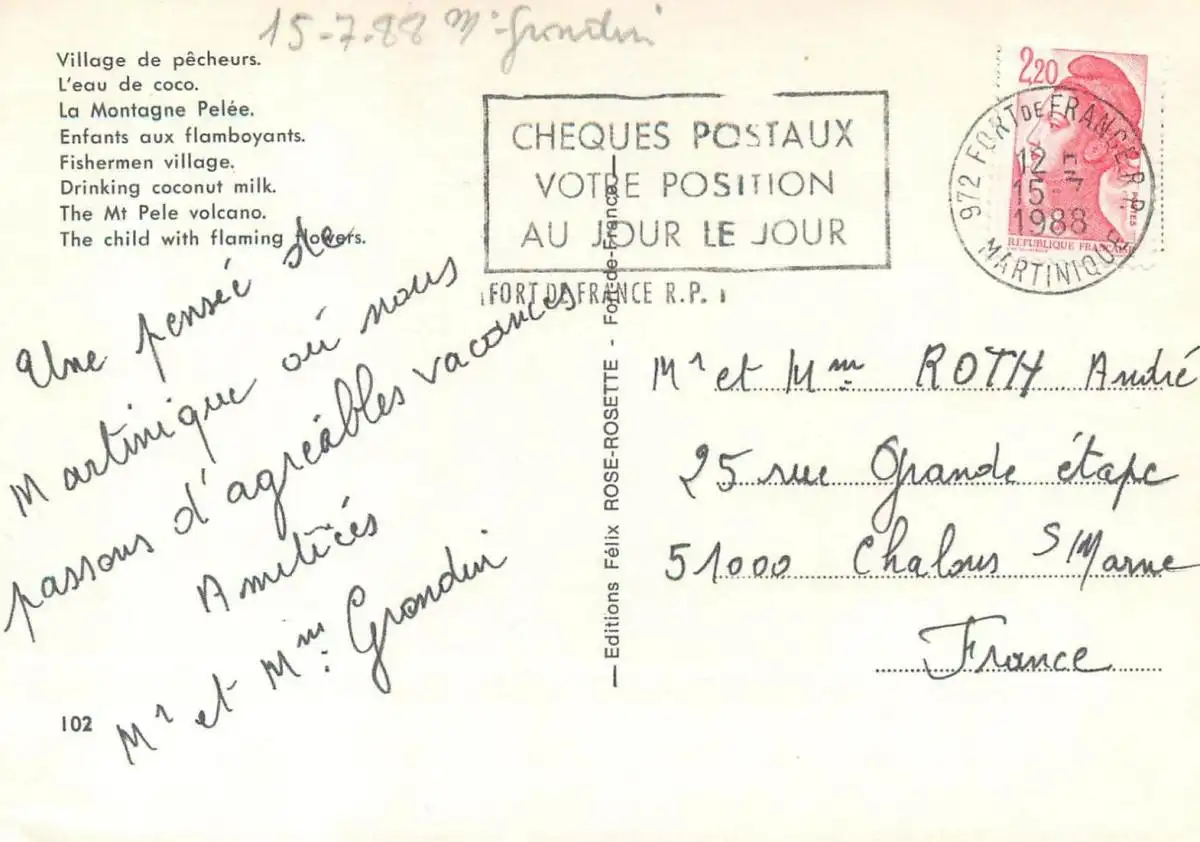 15-7-88 Mr Grondin
Village de pêcheurs.
L'eau de coco.
La Montagne Pelée.
Enfants aux flamboyants.
Fishermen village.
Drinking coconut milk.
The Mt Pele volcano.
The child with flaming flowers.
CHEQUES POSTAUX
VOTRE POSITION
AU JOUR LE JOUR
FORT DE FRANCE R.P.
2,20
POSTES
REPUBLIQUE FRANCAISE
972 FORT DE FRANCE R.P.
12 H
15-7
1988
MARTINIQUE
Une pensée de
Martinique où nous
passons d'agréables vacances
Amitiés
Mr et Mme Grondin
102
Editions Félix ROSE-ROSETTE - Fort-de-France
Mr et Mme ROTH André
25 rue Grande étape
51000 Chalons S/Marne
France